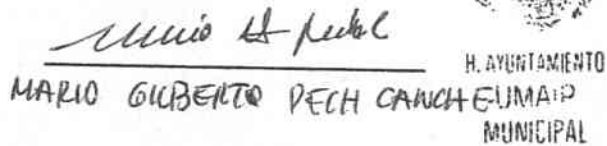 MARIO GILBERTO PECH CANCHE
H. AYUNTAMIENTO
UMAIP
MUNICIPAL